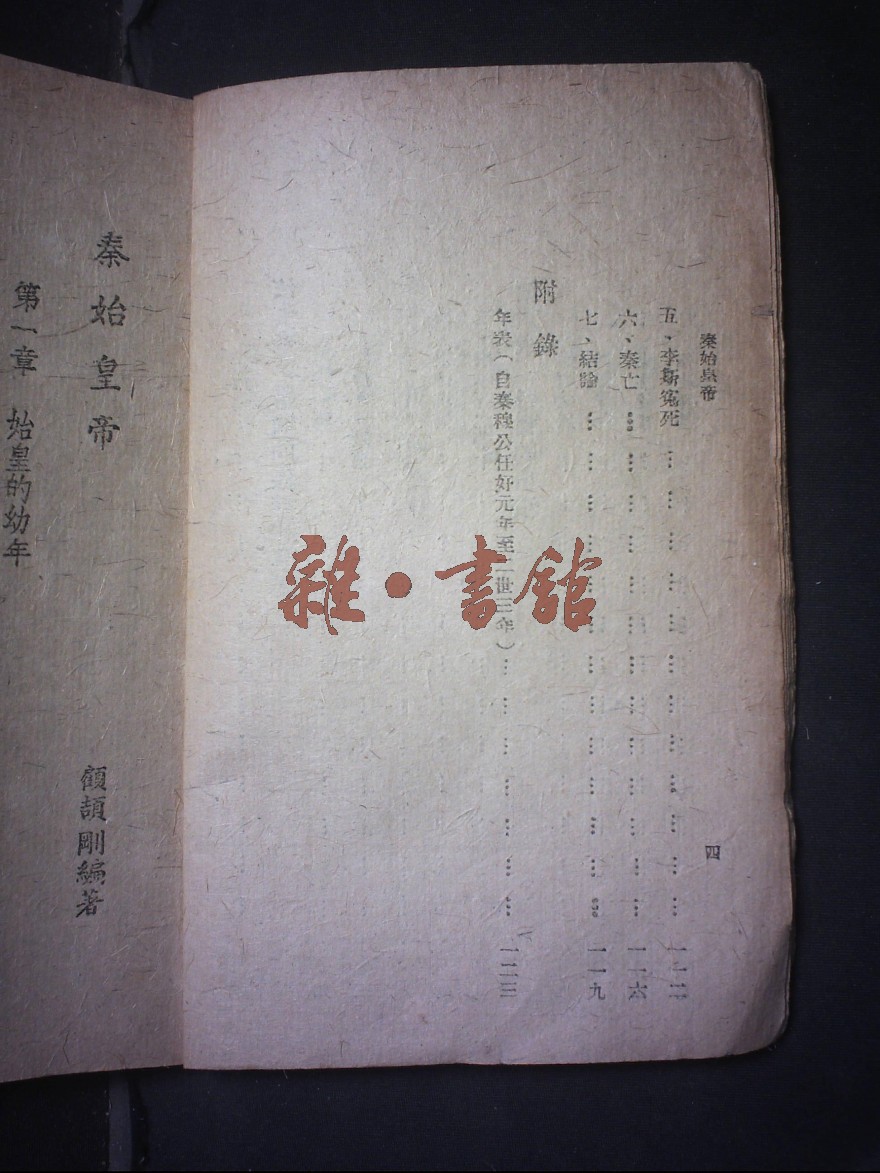 秦始皇帝 四
五、李斯冤死 … … … … … … … … … … … … 一一二
六、秦亡 … … … … … … … … … … … … … 一一六
七、結論 … … … … … … … … … … … … … 一一九
附錄
年表（自秦穆公任好元年至二世三年）… … … … … … … 一二三
雜·書館
秦始皇帝
顧頡剛編著
第一章 始皇的幼年